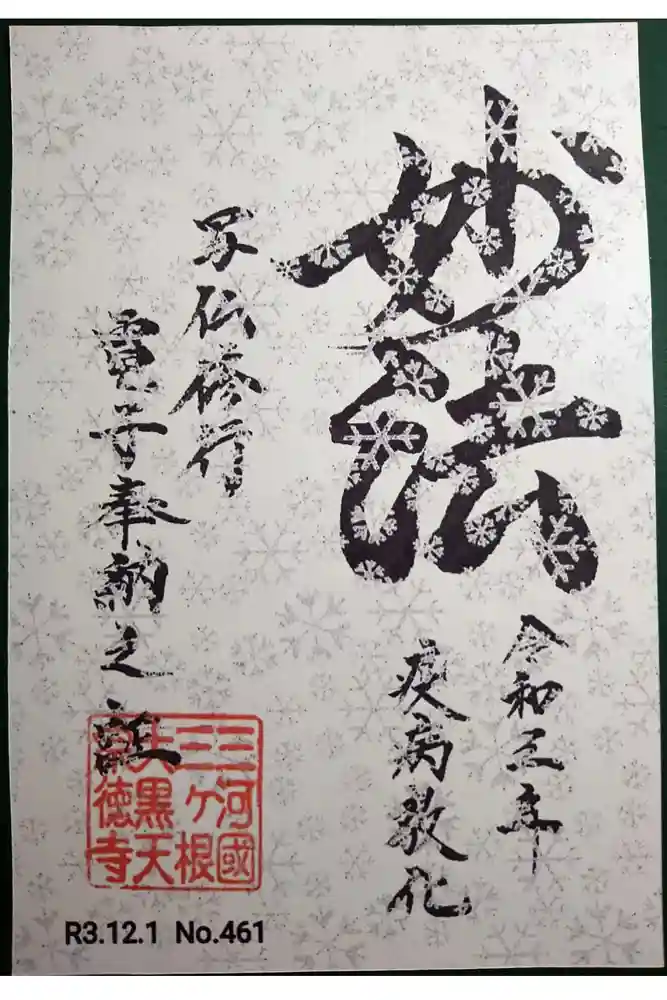 妙法
令和三年
疫病化
写仏修行
電子奉納之証
三河國
三ヶ根
大黒天
徳寺
R3.12.1 No.461